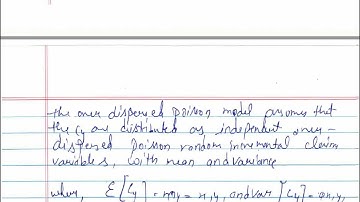 the over dispersed poisson model assumes that
the Cij are distributed as independent over-
dispersed poisson random incremental claim
variables, with mean and variance
where, E[Cij] = mij = xi yj and var [Cij] = φxi yj